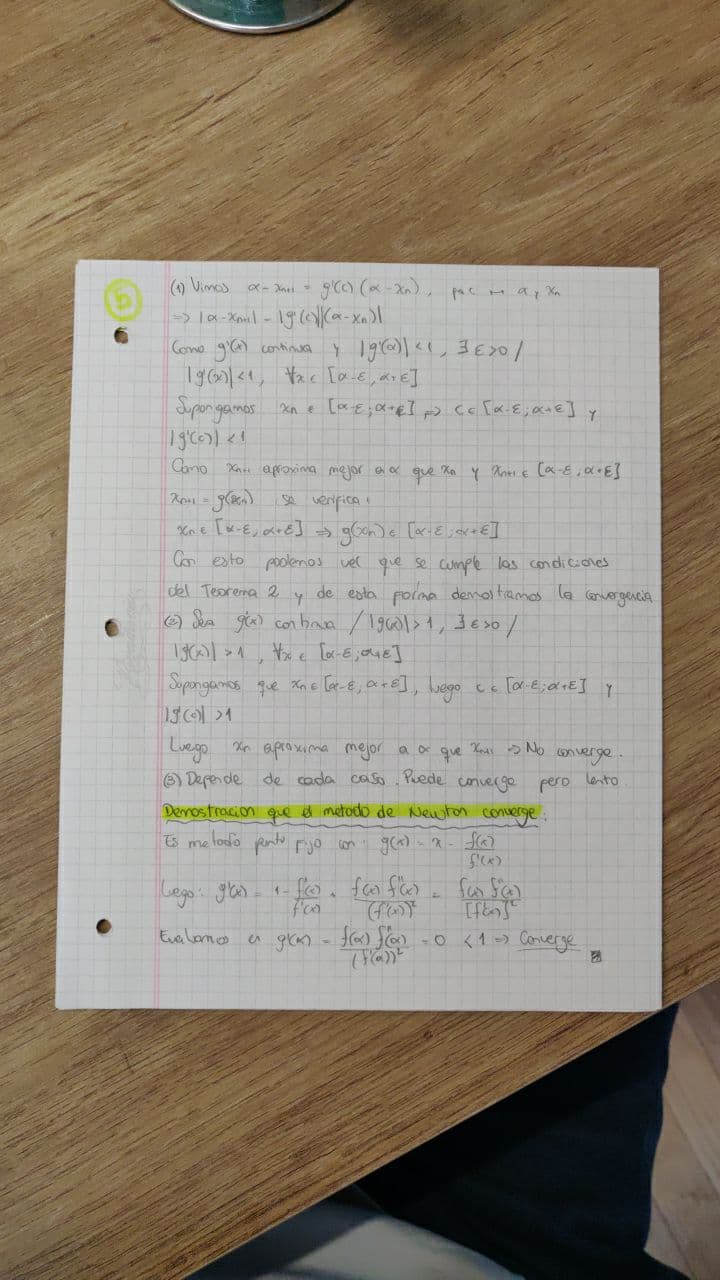 5
(1) Vimos α - xn+1 = g'(c) (α - xn), α y xn
=> |α - xn+1| = |g'(c)||(α - xn)|
Como g'(x) continua y |g'(α)| < 1, ∃ ε>0 /
|g'(x)| < 1, ∀x ∈ [α-ε, α+ε]
Supongamos xn ∈ [α-ε; α+ε] => c ∈ [α-ε; α+ε] y
|g'(c)| < 1
Como xn+1 aproxima mejor a α que xn y xn+1 ∈ [α-ε, α+ε]
xn+1 = g(xn) se verifica:
xn ∈ [α-ε, α+ε] => g(xn) ∈ [α-ε; α+ε]
Con esto podemos ver que se cumple las condiciones
del Teorema 2 y de esta forma demostramos la convergencia
(2) Sea g'(x) continua / |g'(α)| > 1, ∃ ε>0 /
|g'(x)| > 1, ∀x ∈ [α-ε; α+ε]
Supongamos que xn ∈ [α-ε, α+ε], luego c ∈ [α-ε; α+ε] y
|g'(c)| > 1
Luego xn aproxima mejor a α que xn+1 => No converge.
(3) Depende de cada caso. Puede converge pero lento
Demostracion que el metodo de Newton converge:
Es metodo punto Fijo con: g(x) = x - f(x)/f'(x)
Lego: g'(x) = 1 - f'(x)/f'(x) + f(x) f''(x)/(f'(x))² = f(x) f''(x)/[f'(x)]²
Evaluamos en g'(α) = f(α) f''(α)/(f'(α))² = 0 < 1 => Converge